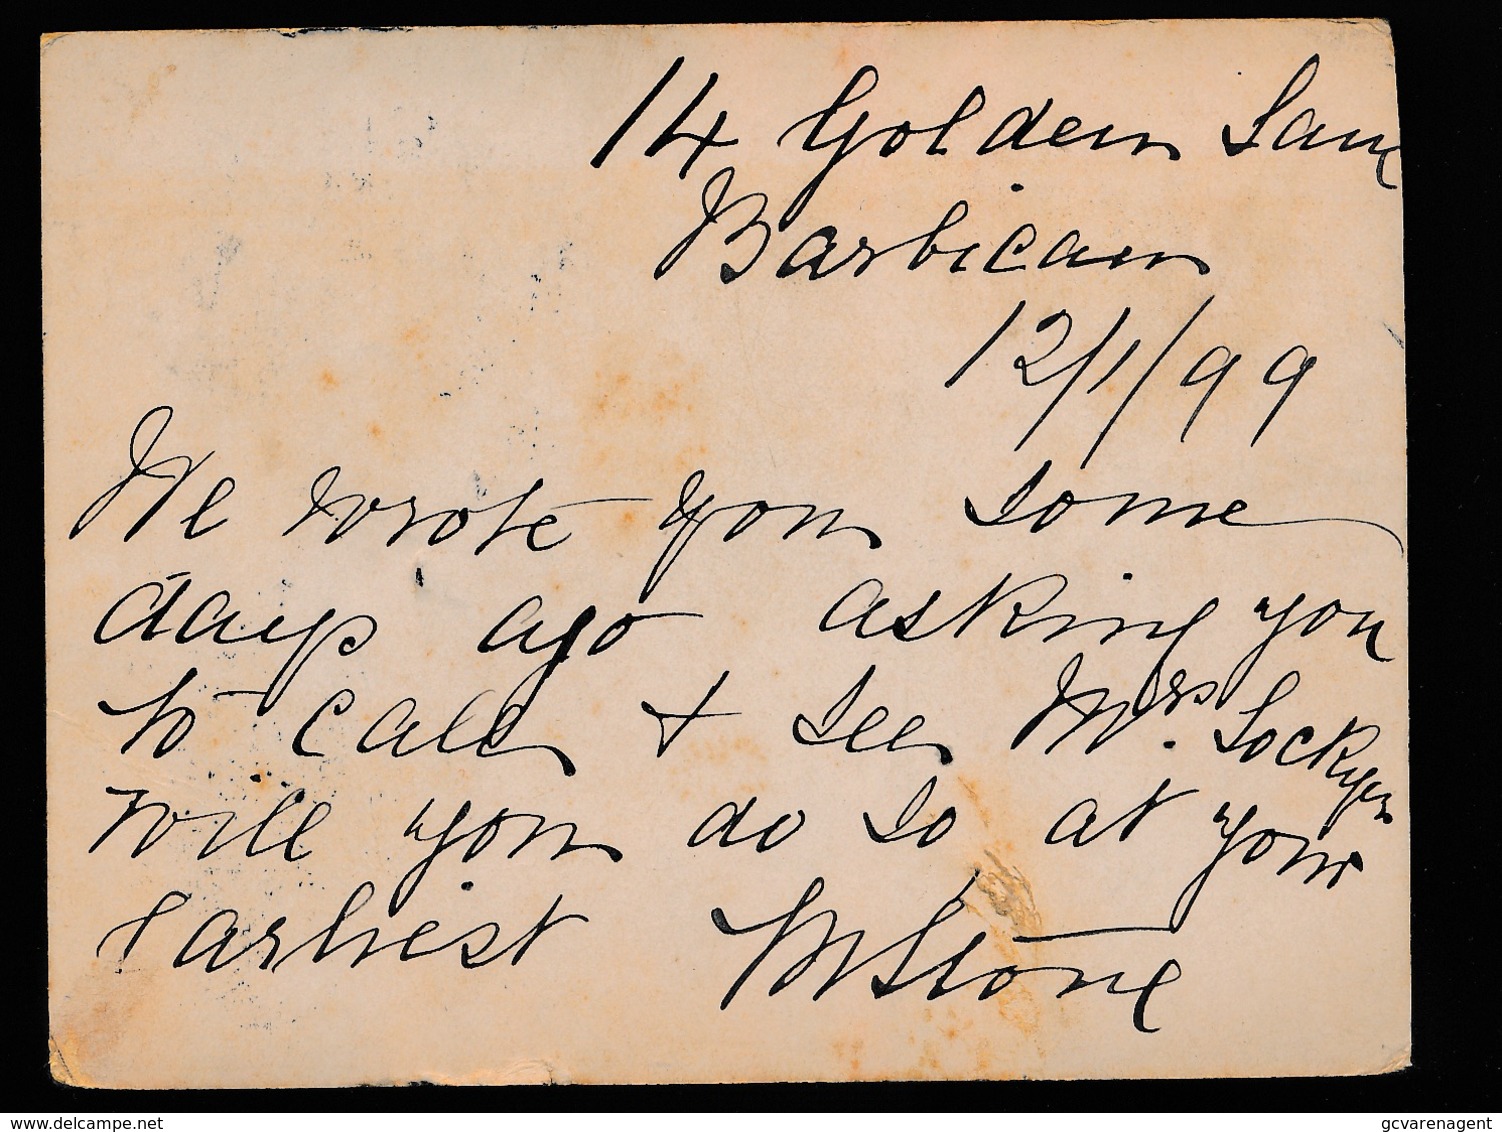 14 Golden Lane
Barbican
12/1/99
We wrote you some
days ago asking you
to call & see Mrs. Lockyer
will you do so at your
earliest M Stone
www.delcampe.net
gcvarenagent